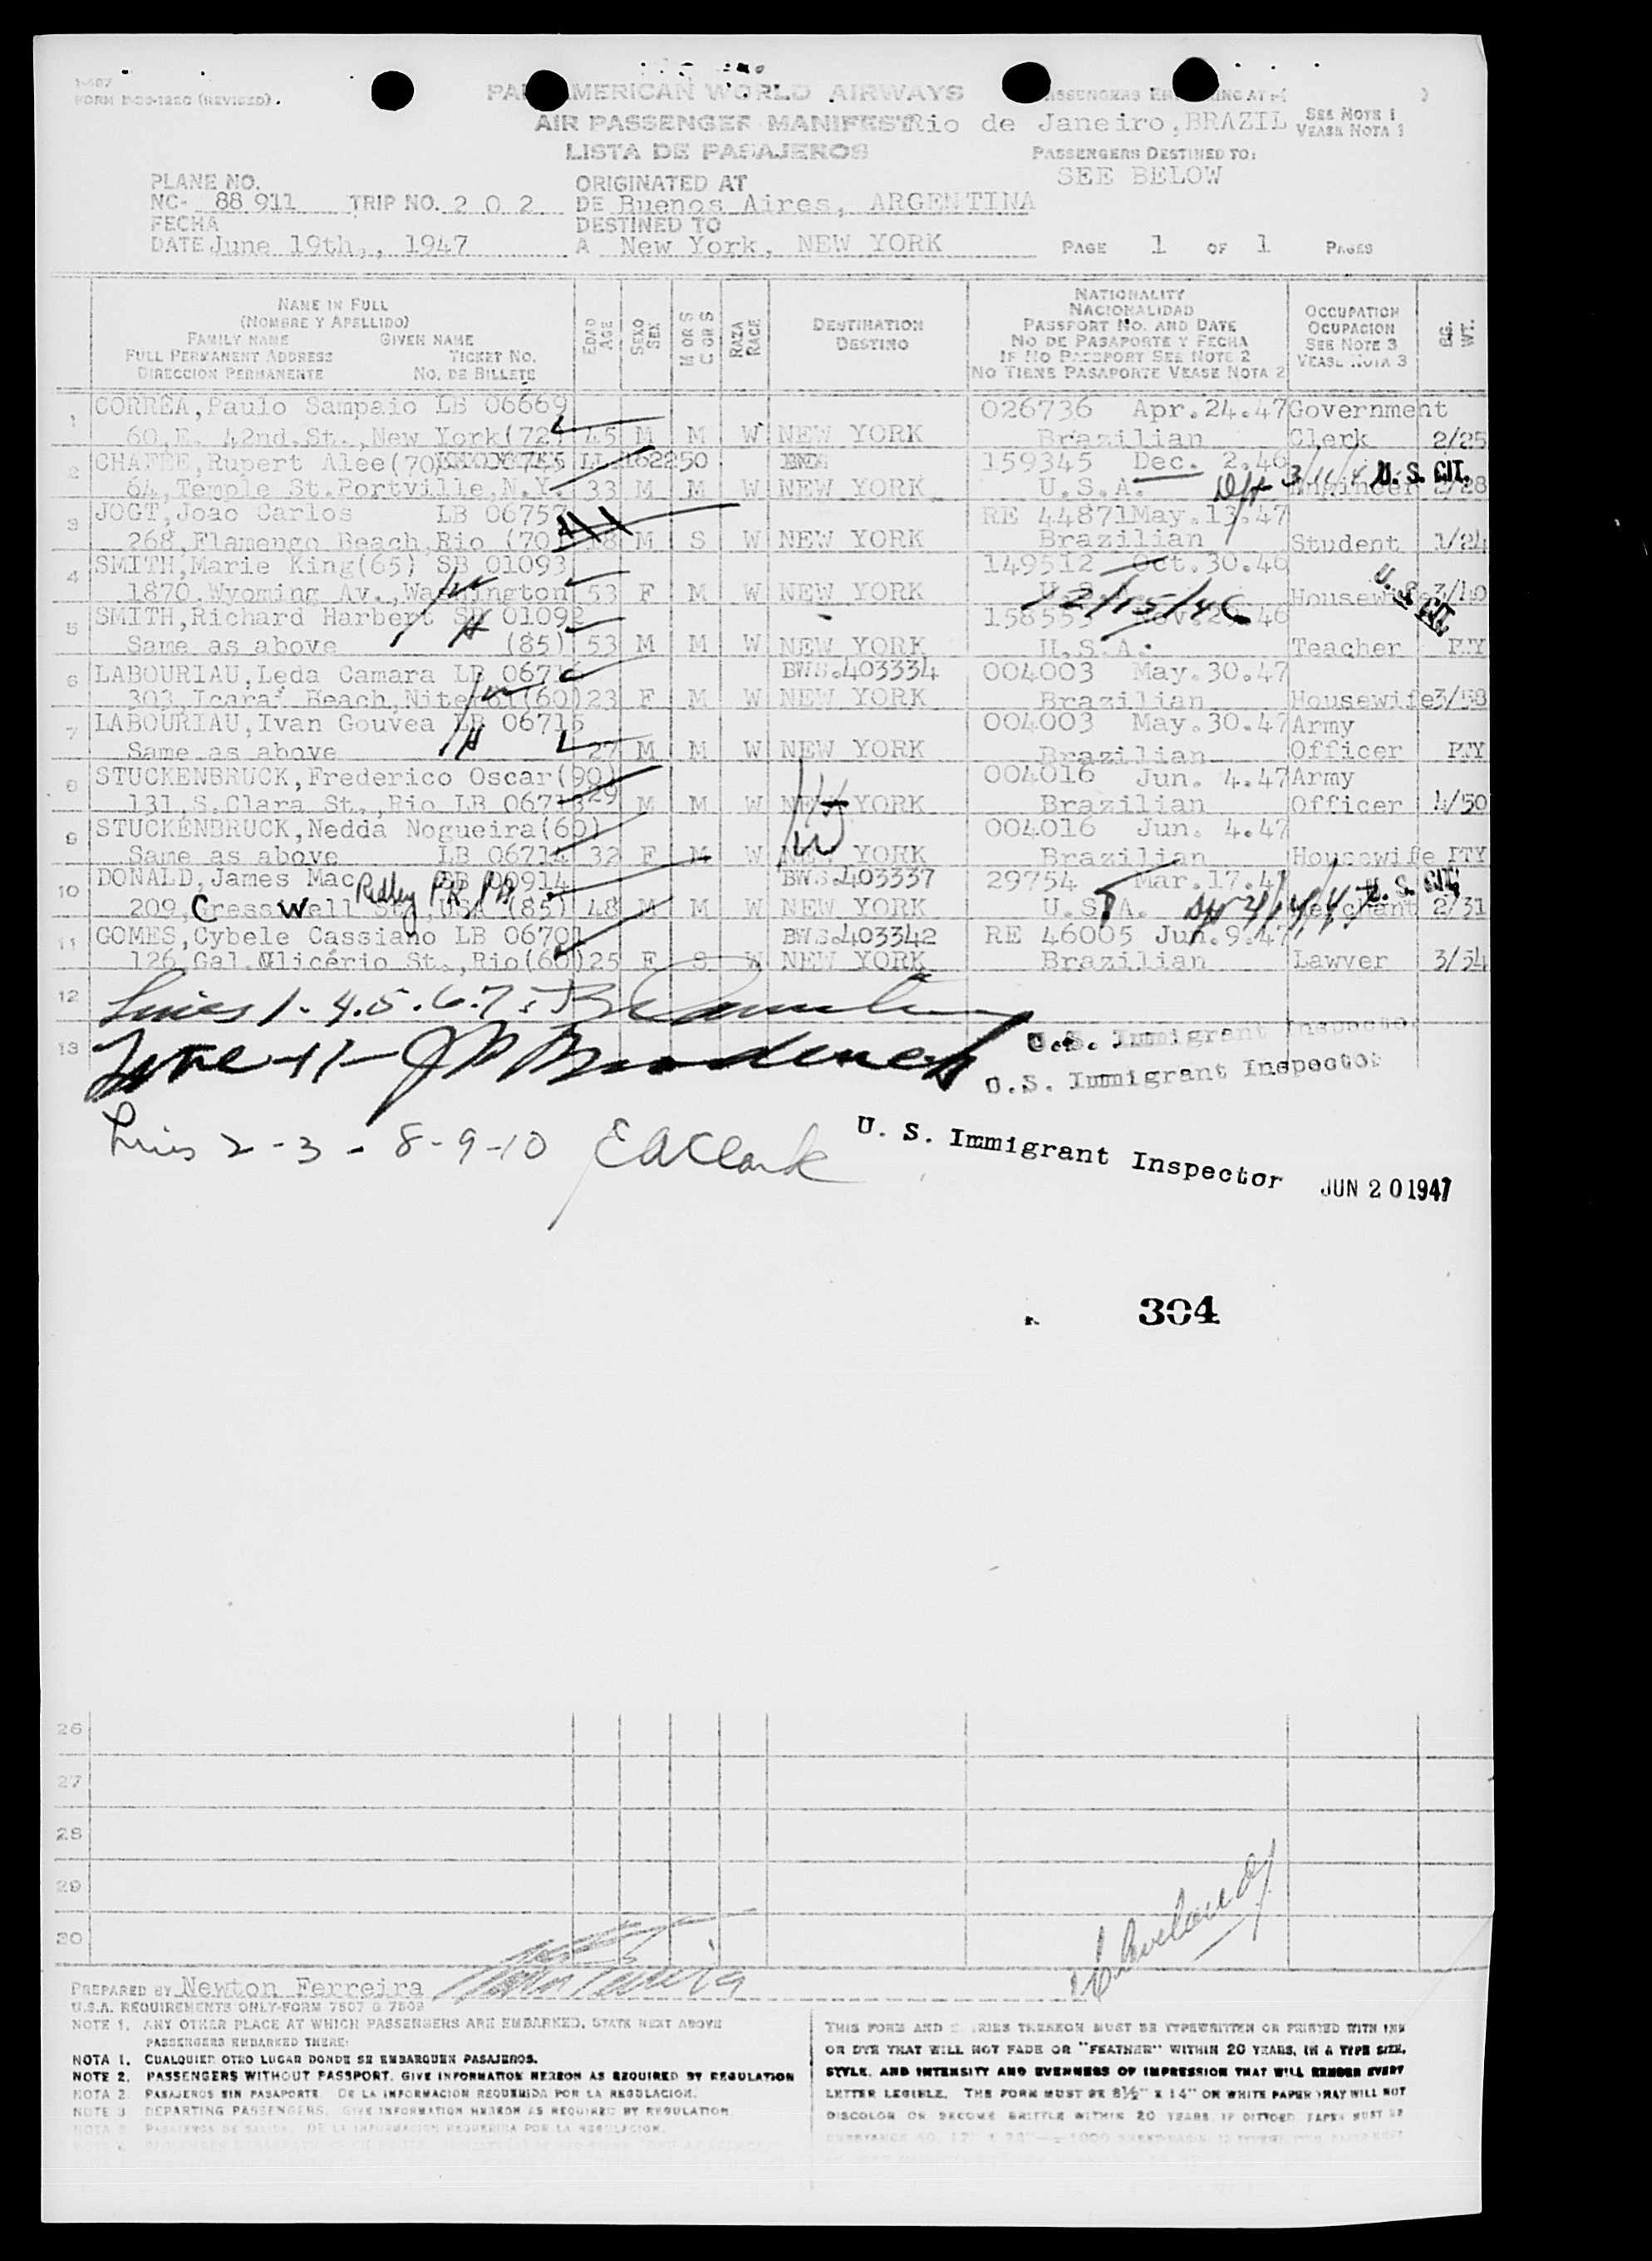 I-487
FORM 1509-128C (REVISED).
PAN AMERICAN WORLD AIRWAYS
AIR PASSENGER MANIFEST
LISTA DE PASAJEROS
Rio de Janeiro, BRAZIL
SEE NOTE 1
VEASE NOTA 1
PASSENGERS DESTINED TO:
SEE BELOW
PLANE NO.
NC- 88 911 TRIP NO. 2 0 2
FECHA
DATE June 19th,, 1947
ORIGINATED AT
DE Buenos Aires, ARGENTINA
DESTINED TO
A New York, NEW YORK
PAGE 1 OF 1 PAGES
NAME IN FULL
(NOMBRE Y APELLIDO)
FAMILY NAME GIVEN NAME
FULL PERMANENT ADDRESS TICKET NO.
DIRECCION PERMANENTE NO. DE BILLETE
EDAD AGE
SEXO SEX
M OR S C OR S
RAZA RACE
DESTINATION
DESTINO
NATIONALITY
NACIONALIDAD
PASSPORT NO. AND DATE
NO DE PASAPORTE Y FECHA
IF NO PASSPORT SEE NOTE 2
NO TIENE PASAPORTE VEASE NOTA 2
OCCUPATION
OCUPACION
SEE NOTE 3
VEASE NOTA 3
WT.
1 CORRÊA,Paulo Sampaio LB 06669 026736 Apr.24.47 Government
60,E. 42nd.St.,New York(72) 45 M M W NEW YORK Brazilian Clerk 2/25
2 CHAFEE,Rupert Alee(70) LL 162250 159345 Dec. 2.46 3/11/4 U. S. CIT.
64,Temple St.Portville,N.Y. 33 M M W NEW YORK U.S.A. Engineer 2/28
3 JOGT,Joao Carlos LB 06757 RE 44871 May.13.47
268,Flamengo Beach,Rio (70) 18 M S W NEW YORK Brazilian Student 1/24
4 SMITH,Marie King(65) SB 01093 149512 Oct.30.46
1870.Wyoming Av.,Washington 53 F M W NEW YORK 12/15/46 Housewife 3/40 U. S. CIT.
5 SMITH,Richard Harbert SB 01092 158553 Nov.29.46
Same as above (85) 53 M M W NEW YORK U.S.A. Teacher PTY
6 LABOURIAU,Leda Camara LB 06716 BWS.403334 004003 May.30.47
303,Icaraf Beach,Niteroi(60) 23 F M W NEW YORK Brazilian Housewife 3/58
7 LABOURIAU,Ivan Gouvea LB 06715 004003 May.30.47 Army
Same as above 27 M M W NEW YORK Brazilian Officer PTY
8 STUCKENBRUCK,Frederico Oscar(90) 004016 Jun. 4.47 Army
131,S.Clara St.,Rio LB 06713 29 M M W NEW YORK Brazilian Officer 4/50
9 STUCKENBRUCK,Nedda Nogueira(60) 004016 Jun. 4.47
Same as above LB 06714 32 F M W NEW YORK Brazilian Housewife PTY
10 DONALD,James Mac Ridley BB 00914 BWS.403337 29754 Mar.17.47 U. S. CIT.
209,Cresswell St.,USA (85) 48 M M W NEW YORK U.S.A. Merchant 2/31
11 GOMES,Cybele Cassiano LB 06701 BWS.403342 RE 46005 Jun.9.47
126,Gal.Glicério St.,Rio(60) 25 F S W NEW YORK Brazilian Lawyer 3/54
12 Lines 1. 4.5.6.7.
U.S. Immigrant Inspector
13 Line -11-
U.S. Immigrant Inspector
Lines 2 - 3 - 8 - 9 - 10 E A Clark
U. S. Immigrant Inspector JUN 20 1947
304
26
27
28
29
30
PREPARED BY Newton Ferreira
U.S.A. REQUIREMENTS ONLY-FORM 7507 & 7508
NOTE 1. ANY OTHER PLACE AT WHICH PASSENGERS ARE EMBARKED, STATE NEXT ABOVE
PASSENGERS EMBARKED THERE:
NOTA 1. CUALQUIER OTRO LUGAR DONDE SE EMBARQUEN PASAJEROS.
NOTE 2. PASSENGERS WITHOUT PASSPORT. GIVE INFORMATION HEREON AS REQUIRED BY REGULATION
NOTA 2 PASAJEROS SIN PASAPORTE. DE LA INFORMACION REQUERIDA POR LA REGULACION.
NOTE 3 DEPARTING PASSENGERS. GIVE INFORMATION HEREON AS REQUIRED BY REGULATION
NOTA 3 PASAJEROS DE SALIDA. DE LA INFORMACION REQUERIDA POR LA REGULACION.
THIS FORM AND ENTRIES THEREON MUST BE TYPEWRITTEN OR PRINTED WITH INK
OR DYE THAT WILL NOT FADE OR "FEATHER" WITHIN 20 YEARS, IN A TYPE SIZE,
STYLE, AND INTENSITY AND EVENNESS OF IMPRESSION THAT WILL RENDER EVERY
LETTER LEGIBLE. THE FORM MUST BE 8½" X 14" ON WHITE PAPER THAT WILL NOT
DISCOLOR OR BECOME BRITTLE WITHIN 20 YEARS. IF DITTOED PAPER MUST BE